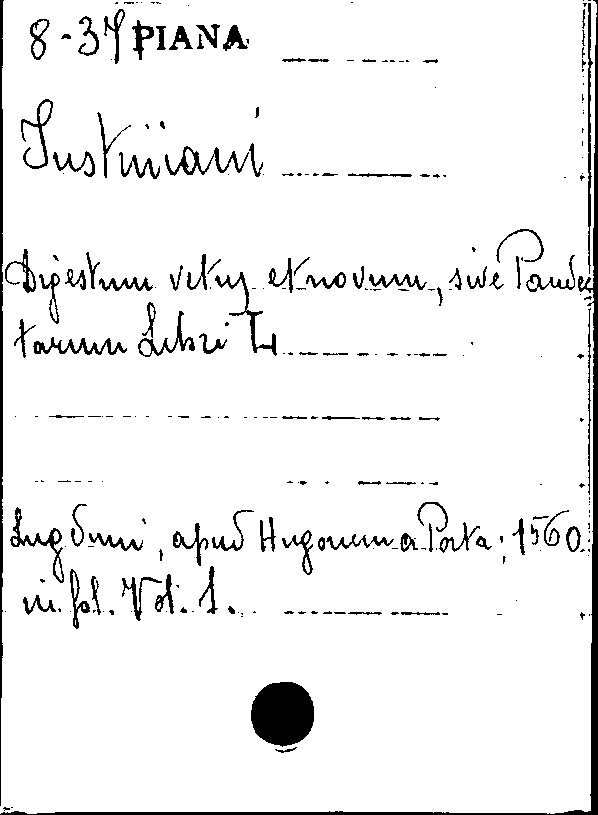 8-37 PIANA
Justiniani
Digestum vetus et novum, sive Pandec
tarum Libri L
Lugduni, apud Hugonem a Porta; 1560
in fol. Vol. 1.